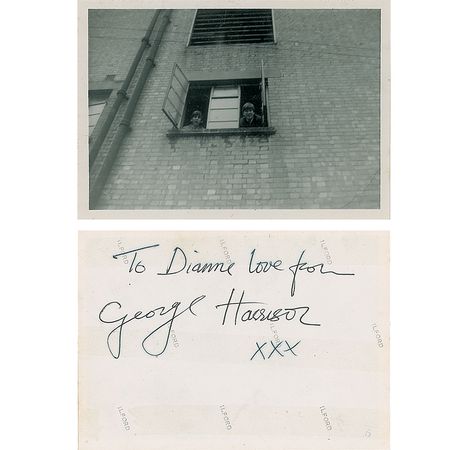 ILFORD ILFORD ILFORD
To Dianne love from
George Harrison
ILFORD ILFORD ILFORD
xxx
ILFORD ILFORD ILFORD
6